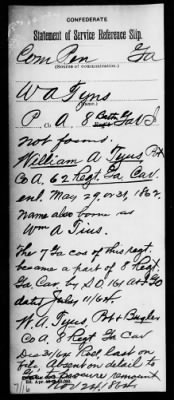 CONFEDERATE
Statement of Service Reference Slip.
Com Pen Ga
(Source of communication.)
W A Tyus
(Name.)
P, Co. A, 8 Ga
not found.
William A Tyus, Pvt
Co A, 62 Regt Ga Cav.
enl. May 29 or 31, 1862
name also borne as
Wm A Tius.
The 7 Ga cos of this regt.
became a part of 8 Regt
Ga Cav by S.O. 161 A&IGO
dated July 11/64.
W. A. Tyus, Pvt & Bugler
Co A, 8 Regt Ga Cav
Dec 31/64 Roll last on
file Absent on detail to
procure remount
Nov 24, 1864